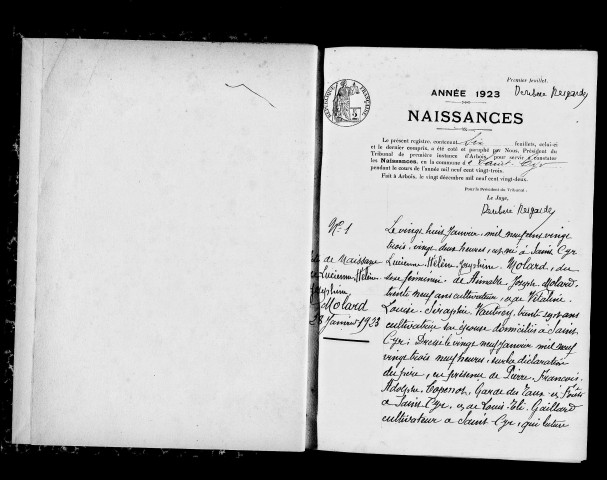 Premier feuillet.
ANNÉE 1923
NAISSANCES
RÉPUBLIQUE FRANÇAISE
Le présent registre, contenant six feuillets, celui-ci
et le dernier compris, a été coté et paraphé par Nous, Président du
Tribunal de première instance d'Arbois, pour servir à constater
les Naissances, en la commune d e Saint-Cyr
pendant le cours de l'année mil neuf cent vingt-trois.
Fait à Arbois, le vingt décembre mil neuf cent vingt-deux.
Pour le Président du Tribunal
Le Juge,
N° 1
de Naissance
Lucienne, Hélène
Joséphine
Molard
28 Janvier 1923
Le vingt huit Janvier, mil neuf cent vingt
trois, vingt deux heures, est née à Saint Cyr
Lucienne Hélène Joséphine Molard, du
sexe féminin, de Aimable Joseph Molard,
trente neuf ans cultivateur, et de
Louise Séraphie trente sept ans
cultivatrice son épouse domiciliés à Saint
Cyr. Dressé le vingt neuf janvier mil neuf
vingt trois neuf heures, sur la déclaration
du père, en présence de Pierre, François,
Adolphe Garde des Eaux et Forêts
a Saint Cyr, et de Louis Eli Gaillard
cultivateur a Saint Cyr, qui lecture